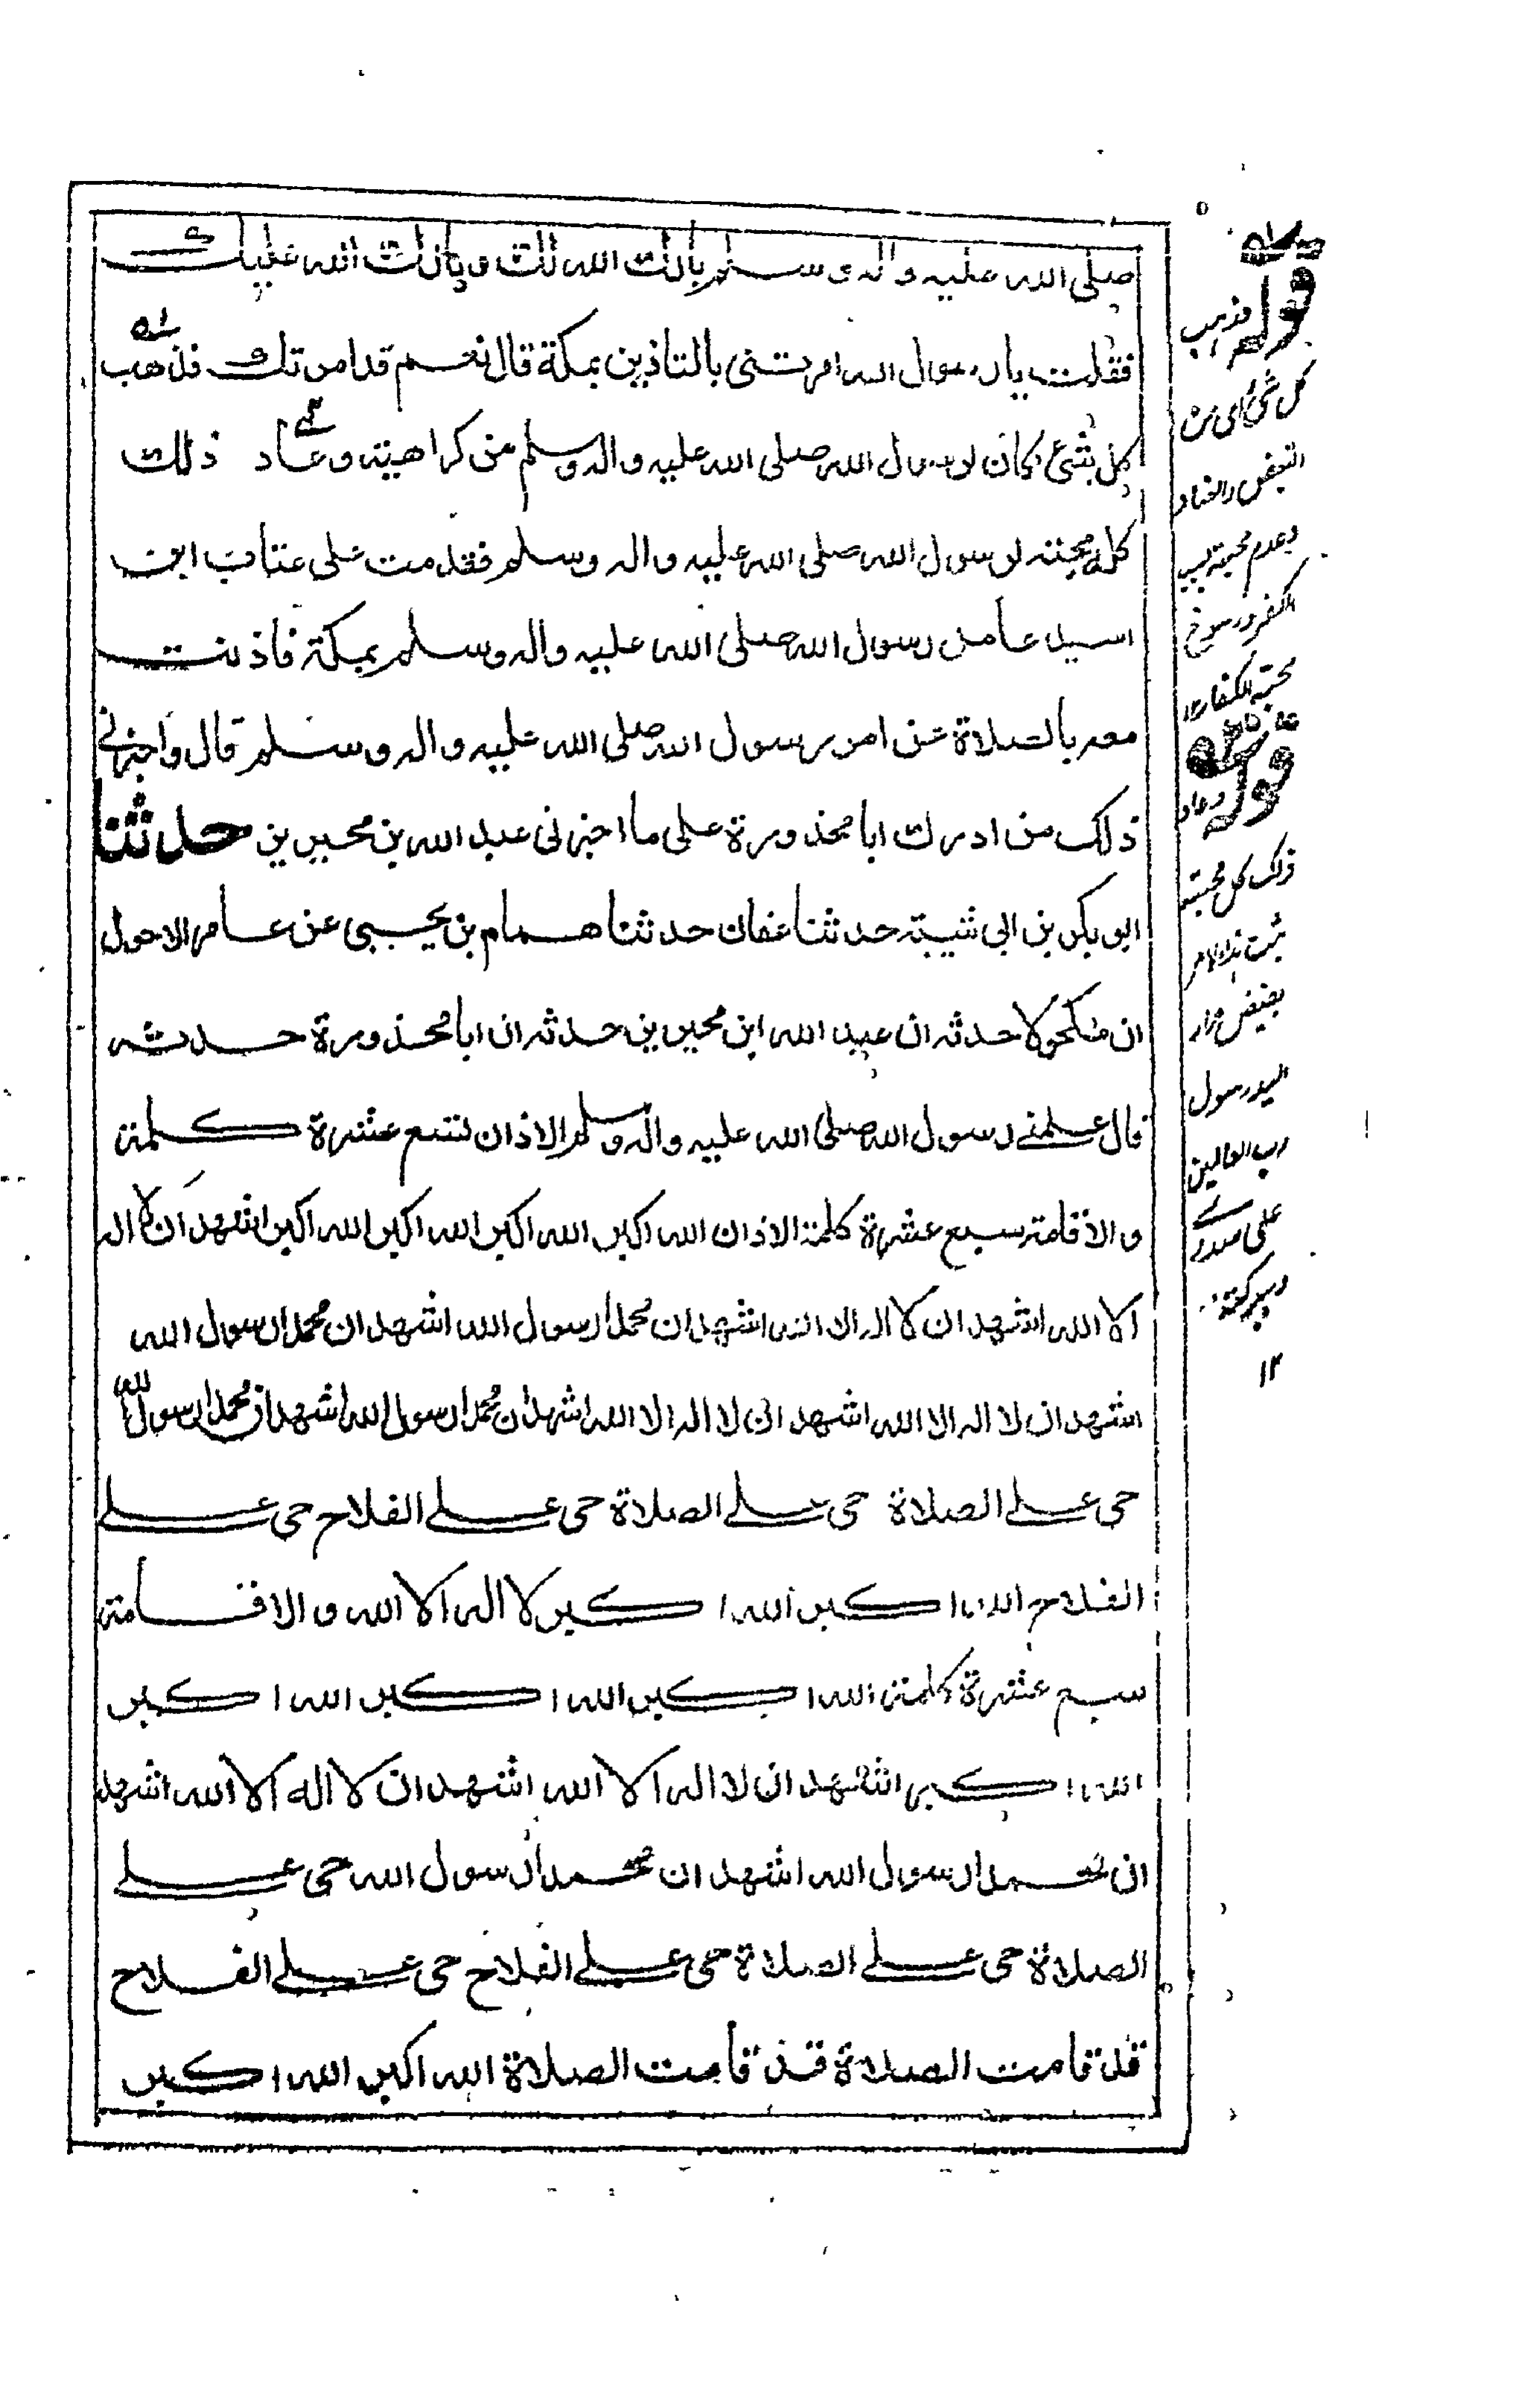 صلى الله عليه واله وسلم بارك الله لك وبارك الله عليك
فقلت يا رسول الله امرتنى بالتاذين بمكة قال نعم قد امرتك فذهب
كل شئ كان لرسول الله صلى الله عليه واله وسلم من كراهية وعاد ذلك
كله محبة لرسول الله صلى الله عليه واله وسلم فقدمت على عتاب ابن
اسيد عامل رسول الله صلى الله عليه واله وسلم بمكة فاذنت
معه بالصلاة عن امر رسول الله صلى الله عليه واله وسلم قال واخبرنى
ذلك من ادرك ابا محذورة على ما اخبرنى عبد الله بن محيريز حدثنا
ابو بكر بن ابى شيبة حدثنا عفان حدثنا همام بن يحيى عن عامر الاحول
ان مكحولا حدثه ان عبد الله ابن محيريز حدثه ان ابا محذورة حدثه
قال علمنے رسول الله صلى الله عليه واله وسلم الاذان تسع عشرة كلمة
والاقامة سبع عشرة كلمة الاذان الله اكبر الله اكبر الله اكبر الله اكبر اشهد ان لا اله
الا الله اشهد ان لا اله الا الله اشهد ان محمدا رسول الله اشهد ان محمدا رسول الله
اشهد ان لا اله الا الله اشهد ان لا اله الا الله اشهد ان محمدا رسول الله اشهد ان محمدا رسول الله
حى علے الصلاة حى علے الصلاة حى علے الفلاح حى علے
الفلاح الله اكبر الله اكبر لا اله الا الله والاقامة
سبع عشرة كلمة الله اكبر الله اكبر الله اكبر
الله اكبر اشهد ان لا اله الا الله اشهد ان لا اله الا الله اشهد
ان محمدا رسول الله اشهد ان محمدا رسول الله حى علے
الصلاة حى علے الصلاة حى علے الفلاح حى علے الفلاح
قد قامت الصلاة قد قامت الصلاة الله اكبر الله اكبر
قوله فذهب
كل شئ اى من
البغض والعناد
وعدم محبته بسبب
الكفر ورسوخ
محبة الكفار ١٢
قوله وعاد
ذلك كل محبة
ثبت هذا الامر
بفيض مرار
اليد رسول
رب العالمين
على صدره
وببركته
١٢